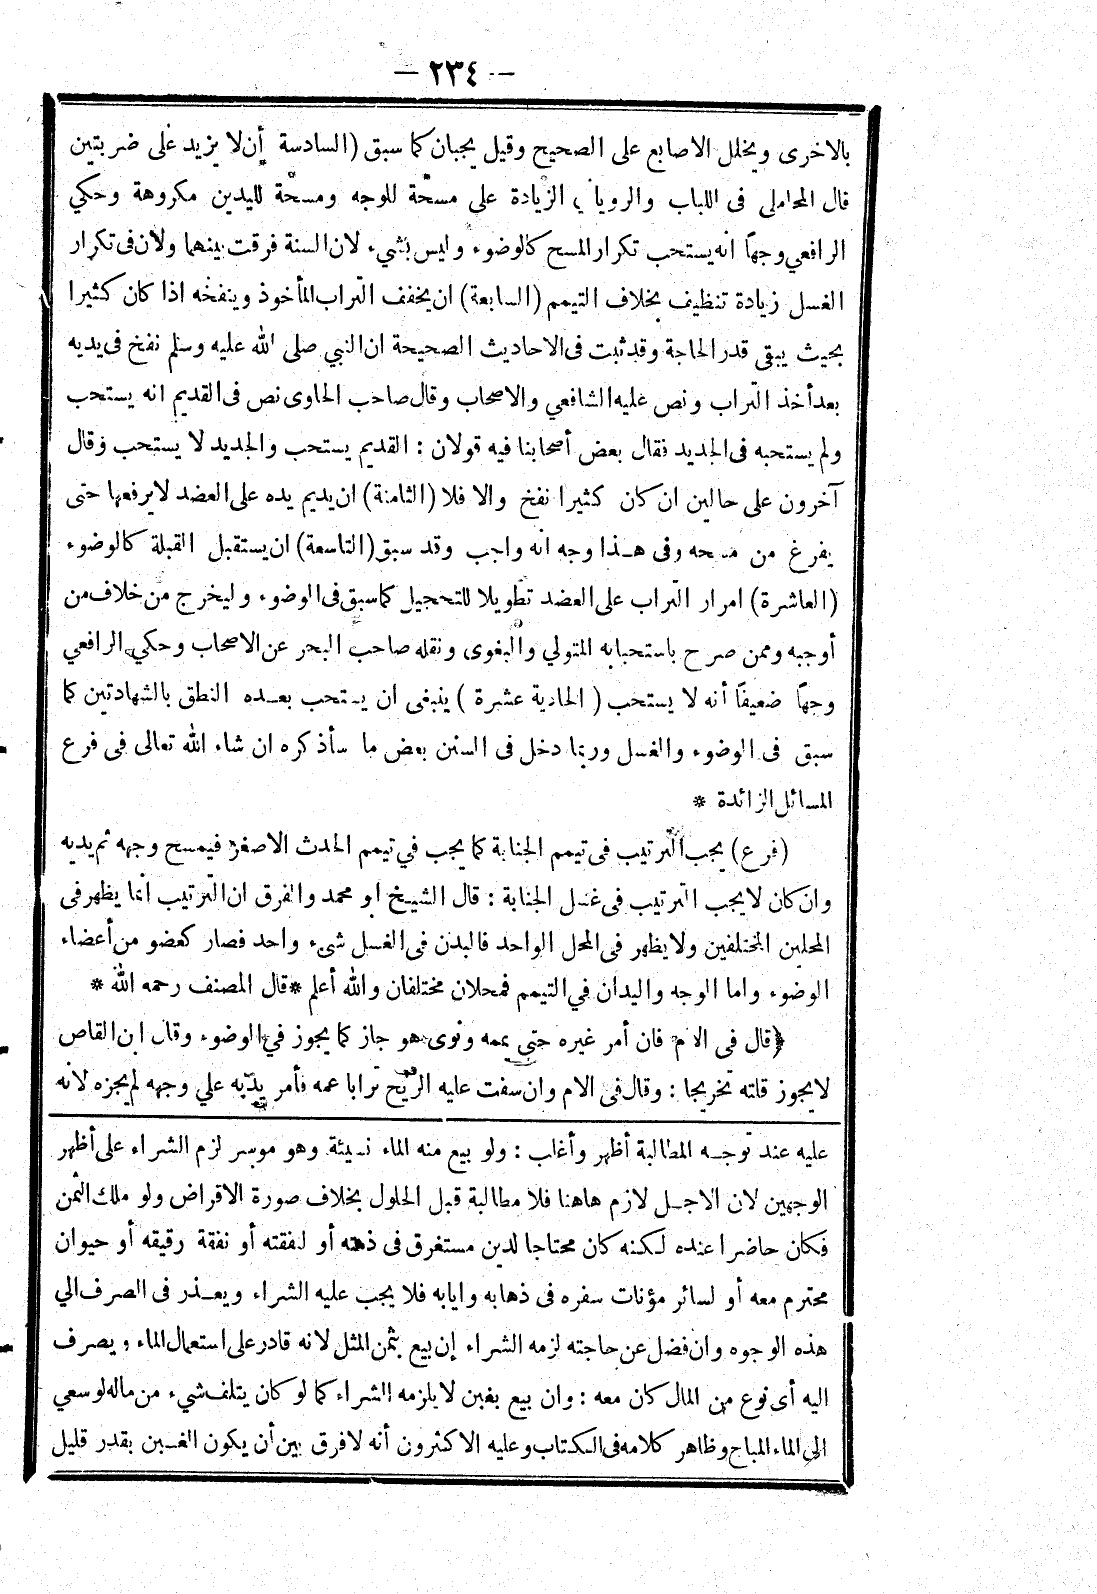 — ٢٣٤ —
بالاخرى ويخلل الاصابع على الصحيح وقيل يجبان كما سبق (السادسة أن لا يزيد على ضربتين
قال المحاملي فى اللباب والرويانى الزيادة على مسحة للوجه ومسحة لليدين مكروهة وحكي
الرافعي وجهاً انه يستحب تكرار المسح كالوضوء وليس بشيء لان السنة فرقت بينهما ولان فى تكرار
الغسل زيادة تنظيف بخلاف التيمم (السابعة) ان يخفف التراب المأخوذ وينفخه اذا كان كثيرا
بحيث يبقى قدر الحاجة وقد ثبت فى الاحاديث الصحيحة ان النبي صلى الله عليه وسلم نفخ فى يديه
بعد أخذ التراب ونص عليه الشافعي والاصحاب وقال صاحب الحاوى نص فى القديم انه يستحب
ولم يستحبه فى الجديد نقال بعض أصحابنا فيه قولان : القديم يستحب والجديد لا يستحب وقال
آخرون على حالين ان كان كثيرا نفخ والا فلا (الثامنة) ان يديم يده على العضد لا يرفعها حتى
يفرغ من مسحه وفى هذا وجه انه واجب وقد سبق (التاسعة) ان يستقبل القبلة كالوضوء
(العاشرة) امرار التراب على العضد تطويلا للتحجيل كما سبق فى الوضوء وليخرج من خلاف من
أوجبه وممن صرح باستحبابه المتولي والبغوى ونقله صاحب البحر عن الاصحاب وحكي الرافعي
وجهاً ضعيفاً أنه لا يستحب ( الحادية عشرة ) ينبغى ان يستحب بعده النطق بالشهادتين كما
سبق فى الوضوء والغسل وربما دخل فى السنن بعض ما سأذكره ان شاء الله تعالى فى فرع
المسائل الزائدة *
(فرع) يجب الترتيب فى تيمم الجنابة كما يجب في تيمم الحدث الاصغر فيمسح وجهه ثم يديه
وان كان لا يجب الترتيب فى غسل الجنابة : قال الشيخ ابو محمد والفرق ان الترتيب انما يظهر فى
المحلين المختلفين ولا يظهر فى المحل الواحد فالبدن فى الغسل شيء واحد فصار كعضو من أعضاء
الوضوء واما الوجه واليدان في التيمم فمحلان مختلفان والله أعلم *قال المصنف رحمه الله *
﴿قال فى الام فان أمر غيره حتى يممه ونوى هو جاز كما يجوز في الوضوء وقال ابن القاص
لا يجوز قلته تخريجا : وقال فى الام وان سفت عليه الريح ترابا عمه فأمر يديه علي وجهه لم يجزه لانه
عليه عند توجه المطالبة أظهر وأغلب : ولو بيع منه الماء نسيئة وهو موسر لزم الشراء على أظهر
الوجهين لان الاجل لازم هاهنا فلا مطالبة قبل الحلول بخلاف صورة الاقراض ولو ملك الثمن
فكان حاضرا عنده لكنه كان محتاجا لدين مستغرق فى ذمته أو لنفقته أو نفقة رقيقه أو حيوان
محترم معه أو لسائر مؤنات سفره فى ذهابه وايابه فلا يجب عليه الشراء ويعذر فى الصرف الي
هذه الوجوه وان فضل عن حاجته لزمه الشراء إن بيع بثمن المثل لانه قادر على استعمال الماء ويصرف
اليه أى نوع من المال كان معه : وان بيع بغبن لا يلزمه الشراء كما لو كان يتلف شيء من ماله لو سعي
الى الماء المباح وظاهر كلامه فى الكتاب وعليه الاكثرون أنه لا فرق بين أن يكون الغبن بقدر قليل